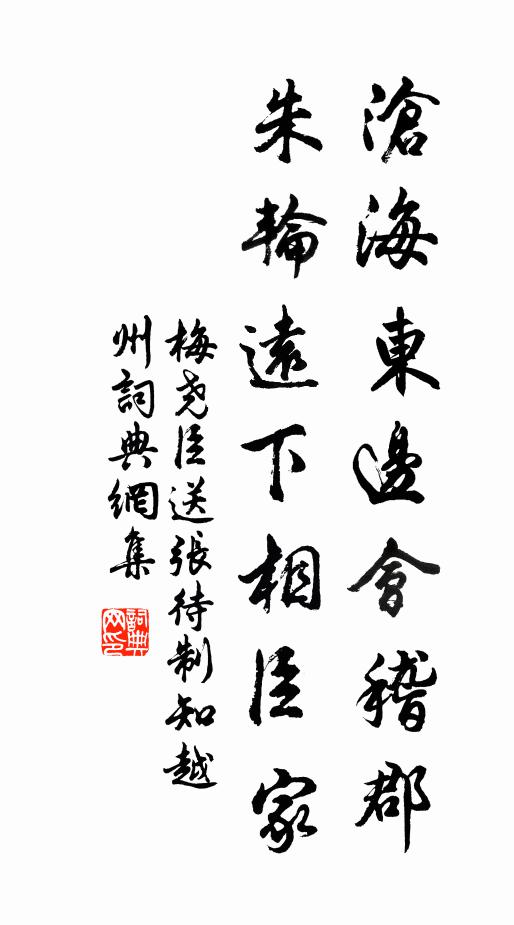 滄海東邊會稽郡
朱輪遠下相臣家
梅尧臣送張待制知越
州詞典網集
詞典
网印